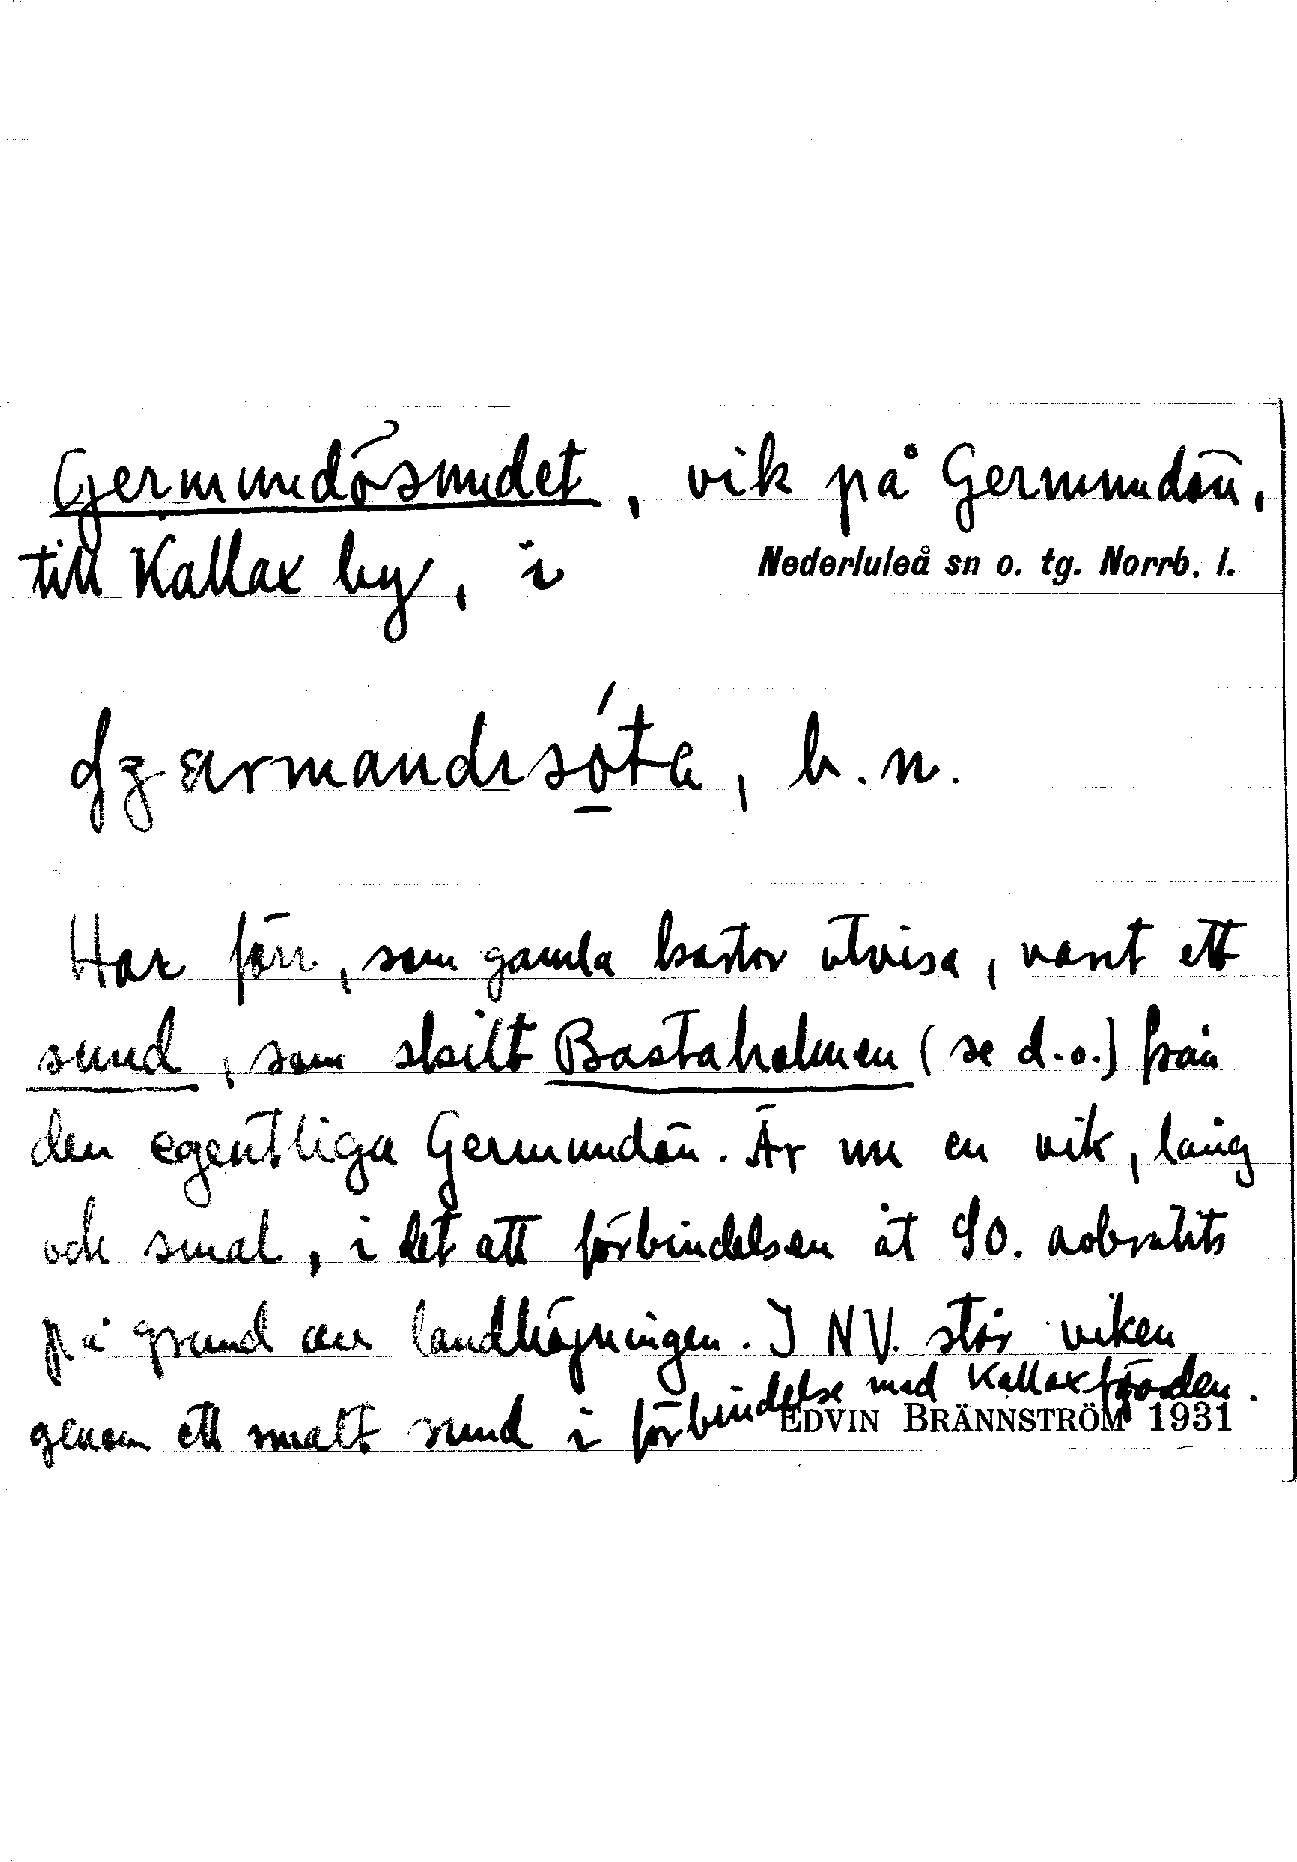 Germundösundet, vik på Germundön,
till Kallax by, i Nederluleå sn o. tg. Norrb. l.
b. n.
Har förr, som gamla kartor utvisa, varit ett
sund, som skilt Bastaholmen (se d.o.) från
den egentliga Germundön. Är nu en vik, lång
och smal, i det att förbindelsen åt SO. avbrutits
på grund av landhöjningen. I NV. står viken
genom ett smalt sund i förbindelse med Kallaxfjärden.
EDVIN BRÄNNSTRÖM 1931